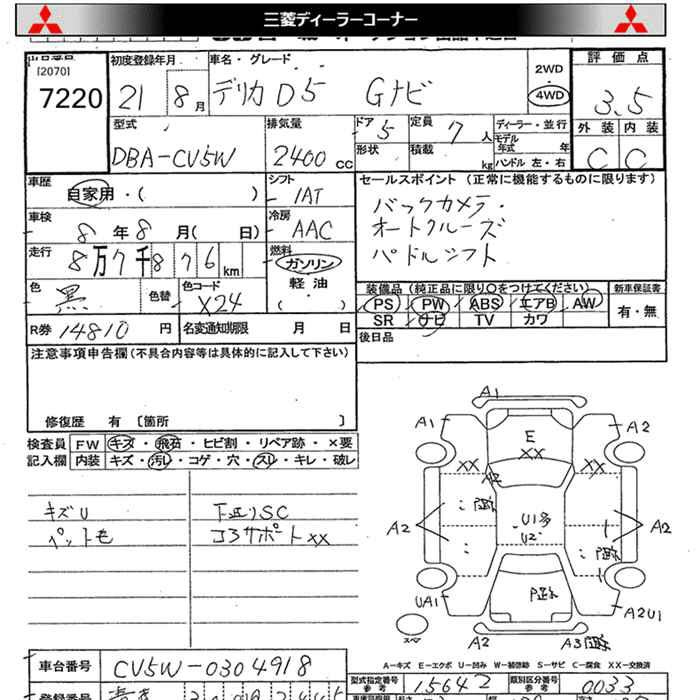 三菱ディーラーコーナー
出品番号
[2070]
7220
初度登録年月
21 8月
車名・グレード
デリカD5 Gナビ
2WD
4WD
評価点
3.5
型式
DBA-CV5W
排気量
2400cc
ドア 5
形状
定員 7人
積載 kg
ディーラー・並行
モデル年式 年
ハンドル 左・右
外装 内装
C C
車歴
自家用・( )
シフト
IAT
車検
8年8月( 日)
冷房
AAC
走行
8万7千876km
燃料
ガソリン
軽油
( )
色
黒
色替
色コード
X24
R券 14810円
名変通知期限 月 日
セールスポイント (正常に機能するものに限ります)
バックカメラ・
オートクルーズ
パドルシフト
装備品 (純正品に限り○をつけてください)
PS PW ABS エアB AW
SR ナビ TV カワ
新車保証書
有・無
後日品
注意事項申告欄(不具合内容等は具体的に記入して下さい)
修復歴 有 [箇所 ]
検査員
記入欄
FW キズ・飛石・ヒビ割・リペア跡・×要
内装 キズ・汚レ・コゲ・穴・スレ・キレ・破レ
キズU
ペット毛
下廻りSC
コアサポートXX
A1
A1
A2
E
XX
XX
A2
XX
A2
A2
U1多
U2
UA1
A2U1
スペア
A2
A3
A-キズ E-エクボ U-凹み W-補修跡 S-サビ C-腐食 XX-交換済
車台番号
CV5W-0304918
型式指定番号
参考
15642
類別区分番号
参考
0033